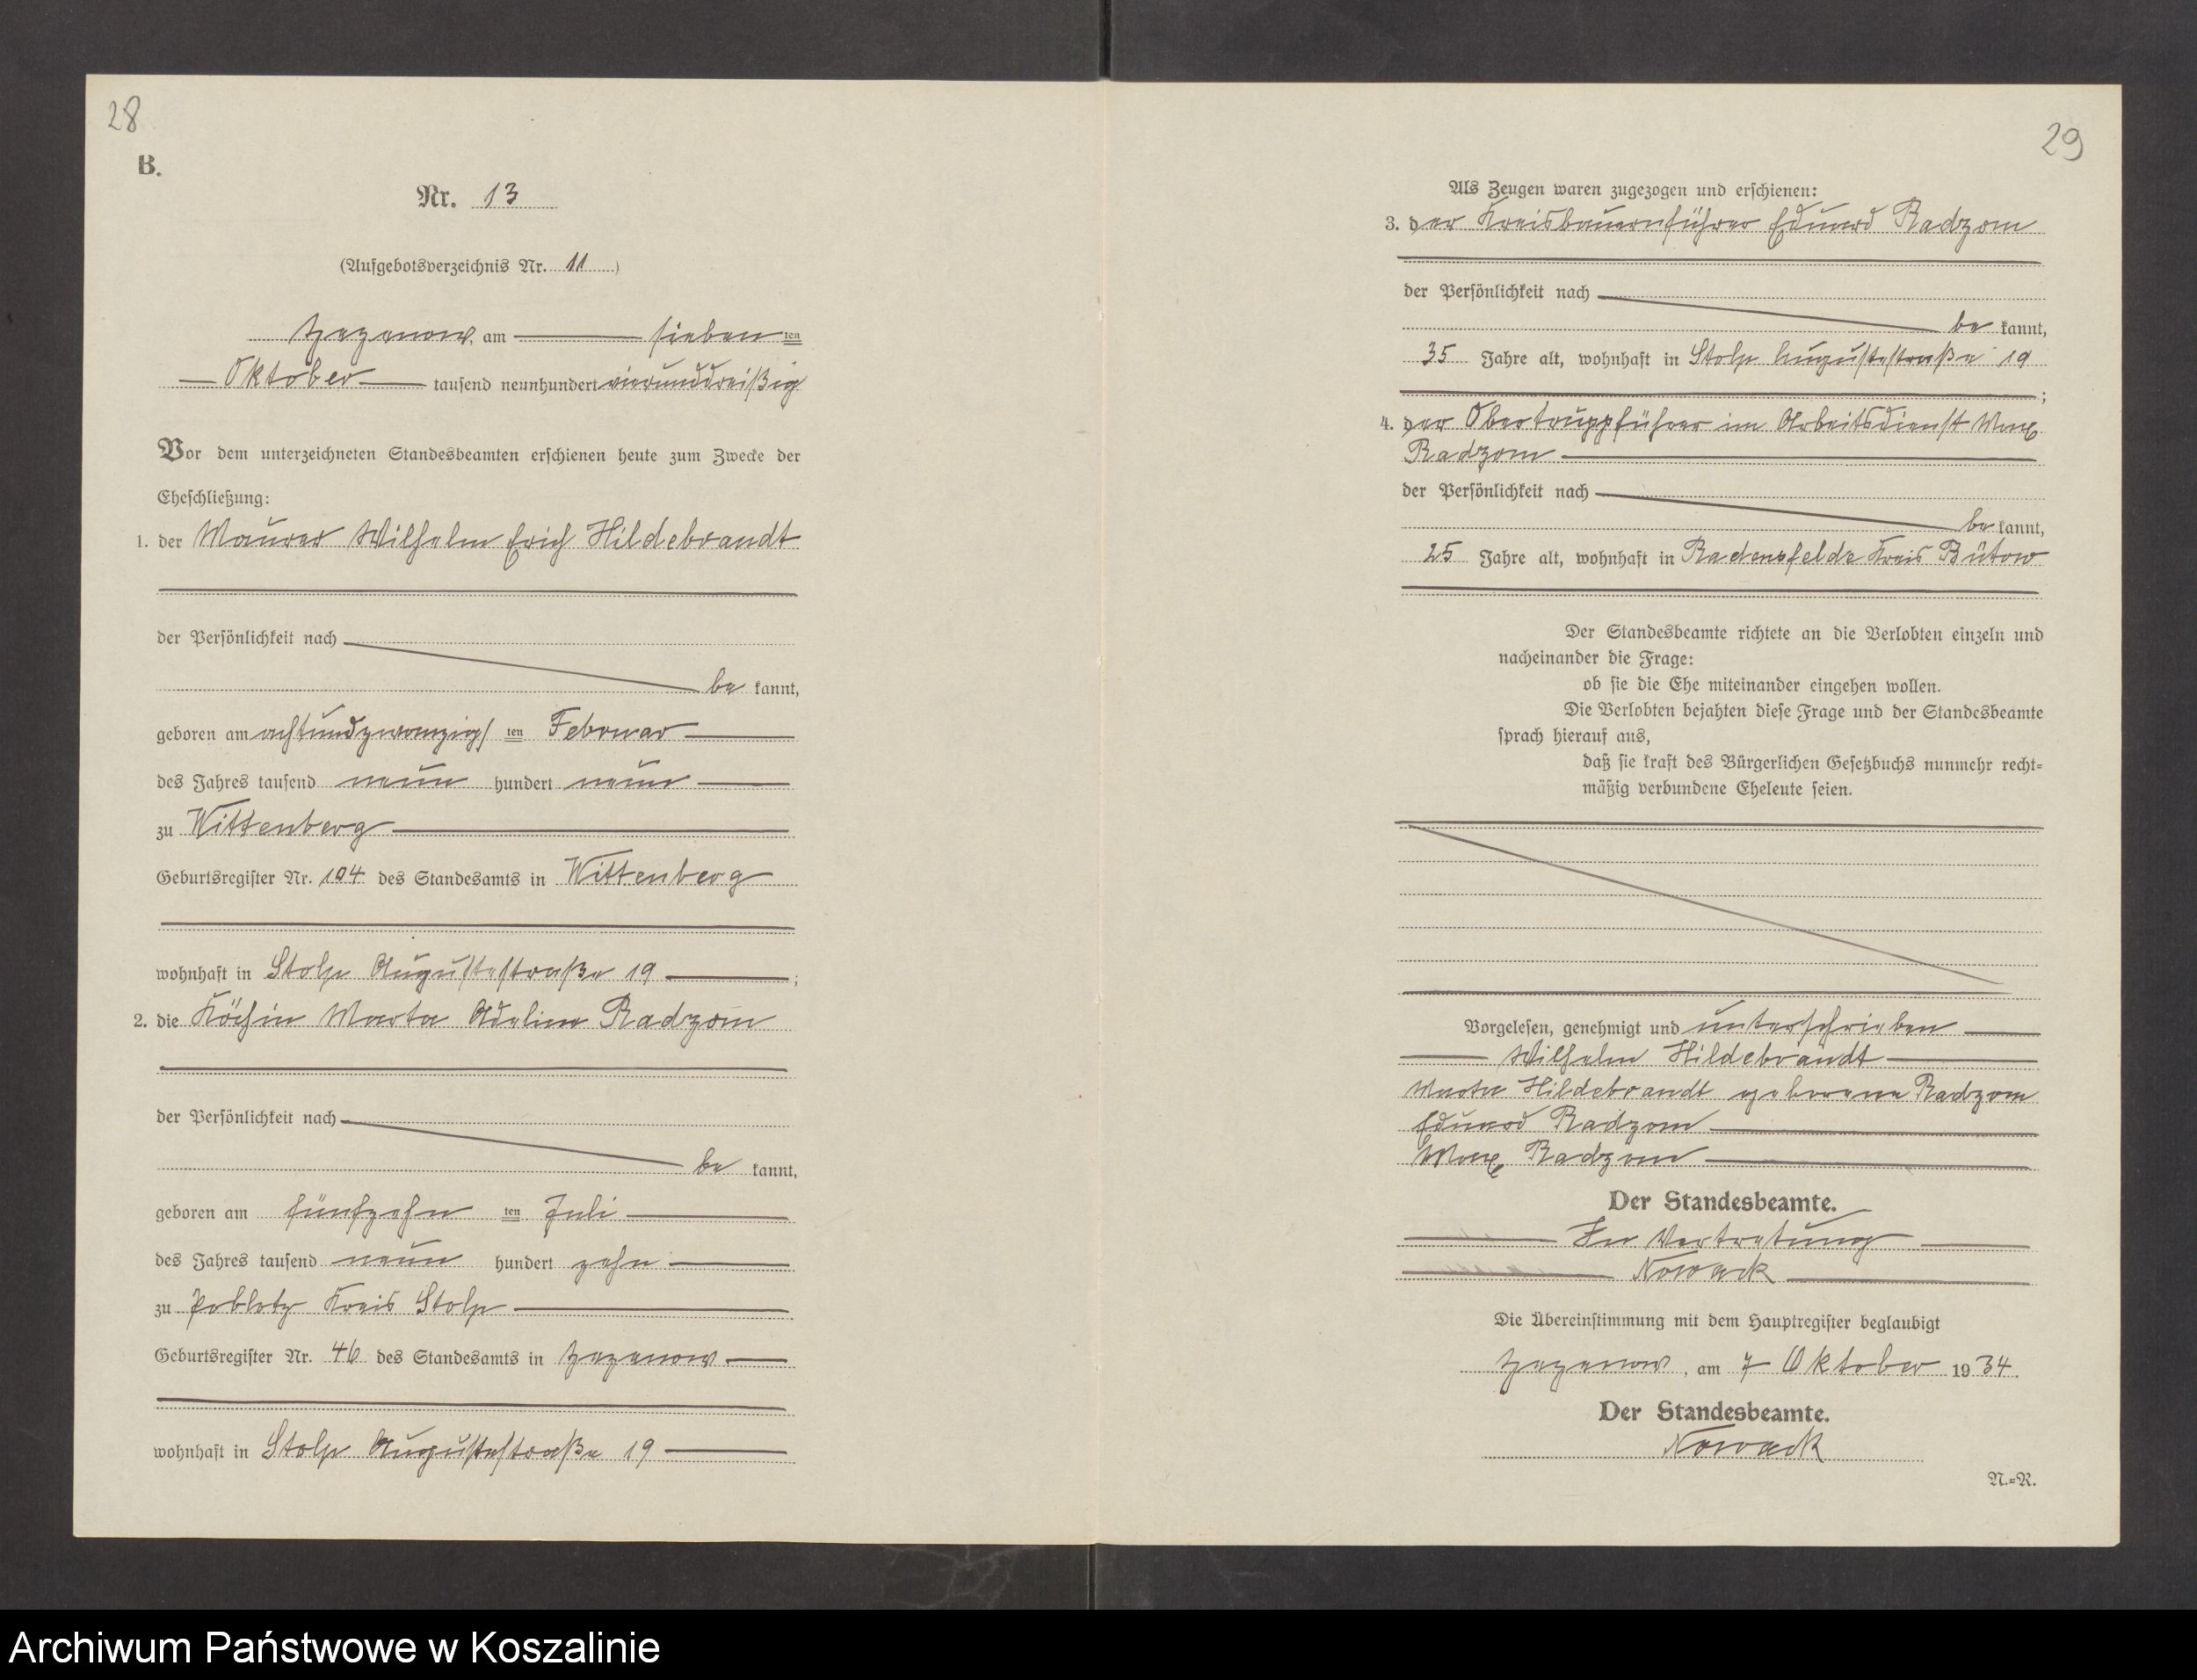 28
B.
Nr. 13
(Aufgebotsverzeichnis Nr. 11)
Zezenow, am sieben ten
Oktober tausend neunhundert vierunddreißig
Vor dem unterzeichneten Standesbeamten erschienen heute zum Zwecke der
Eheschließung:
1. der Maurer Wilhelm Erich Hildebrandt
der Persönlichkeit nach
be kannt,
geboren am achtundzwanzigs ten Februar
des Jahres tausend neun hundert neun
zu Wittenberg
Geburtsregister Nr. 104 des Standesamts in Wittenberg
wohnhaft in Stolp Augustastraße 19 ;
2. die Köchin Marta Adeline Radzom
der Persönlichkeit nach
be kannt,
geboren am fünfzehn ten Juli
des Jahres tausend neun hundert zehn
zu Poblotz Kreis Stolp
Geburtsregister Nr. 46 des Standesamts in Zezenow
wohnhaft in Stolp Augustastraße 19
29
Als Zeugen waren zugezogen und erschienen:
3. der Kreisbauernführer Eduard Radzom
der Persönlichkeit nach
be kannt,
35 Jahre alt, wohnhaft in Stolp Augustastraße 19
;
4. der Obertruppführer im Arbeitsdienst Max
Radzom
der Persönlichkeit nach
be kannt,
25 Jahre alt, wohnhaft in Radensfelde Kreis Bütow
Der Standesbeamte richtete an die Verlobten einzeln und
nacheinander die Frage:
ob sie die Ehe miteinander eingehen wollen.
Die Verlobten bejahten diese Frage und der Standesbeamte
sprach hierauf aus,
daß sie kraft des Bürgerlichen Gesetzbuchs nunmehr recht=
mäßig verbundene Eheleute seien.
Vorgelesen, genehmigt und unterschrieben
Wilhelm Hildebrandt
Marta Hildebrandt geborene Radzom
Eduard Radzom
Max Radzom
Der Standesbeamte.
In Vertretung
Nowack
Die Übereinstimmung mit dem Hauptregister beglaubigt
Zezenow, am 7 Oktober 1934.
Der Standesbeamte.
Nowack
N.=R.
Archiwum Państwowe w Koszalinie